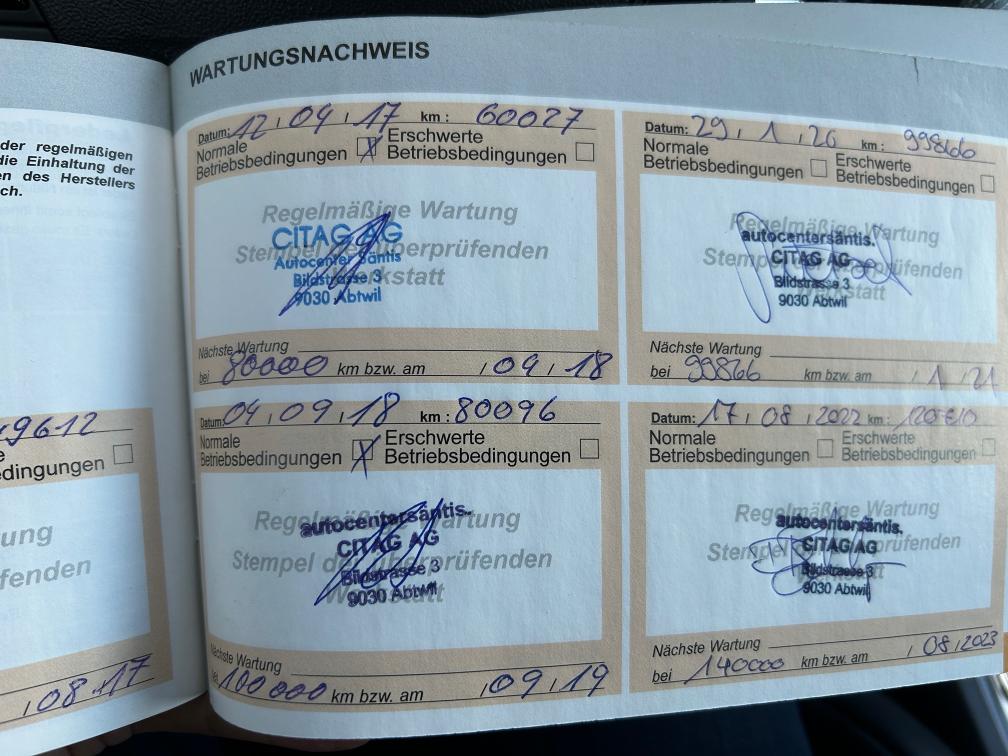 der regelmäßigen
die Einhaltung der
en des Herstellers
ch.
9612
edingungen
ung
fenden
08.17
WARTUNGSNACHWEIS
Datum: 12.04.17 km: 60027
Normale Betriebsbedingungen X Erschwerte Betriebsbedingungen
Regelmäßige Wartung
Stempel der überprüfenden
Werkstatt
CITAG AG
Autocenter Säntis
Bildstrasse 3
9030 Abtwil
Nächste Wartung
bei 80000 km bzw. am 09.18
Datum: 04.09.18 km: 80096
Normale Betriebsbedingungen X Erschwerte Betriebsbedingungen
Regelmäßige Wartung
Stempel der überprüfenden
Werkstatt
autocentersäntis.
CITAG AG
Bildstrasse 3
9030 Abtwil
Nächste Wartung
bei 100000 km bzw. am 09.19
Datum: 29.1.20 km: 99866
Normale Betriebsbedingungen Erschwerte Betriebsbedingungen
Regelmäßige Wartung
Stempel der überprüfenden
Werkstatt
autocentersäntis.
CITAG AG
Bildstrasse 3
9030 Abtwil
Nächste Wartung
bei 99866 km bzw. am 1.21
Datum: 17.08.2022 km:
Normale Betriebsbedingungen Erschwerte Betriebsbedingungen
Regelmäßige Wartung
Stempel der überprüfenden
Werkstatt
autocentersäntis.
CITAG AG
Bildstrasse 3
9030 Abtwil
Nächste Wartung
bei 140000 km bzw. am 08.2023